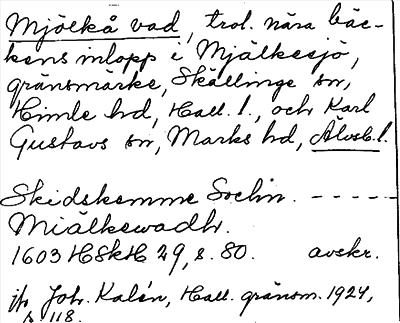 Mjölkå vad, trol. nära bäc-
kens inlopp i Mjälkesjö,
gränsmärke, Skällinge sn,
Himle hd, Hall. l., och Karl
Gustavs sn, Marks hd, Älvsb. l.
Skidskemme Sochn. - - - - -
Miälkewadh.
1603 HSkH 29, s. 80. avskr.
jfr Joh. Kalén, Hall. gränsm. 1924,
s. 118.